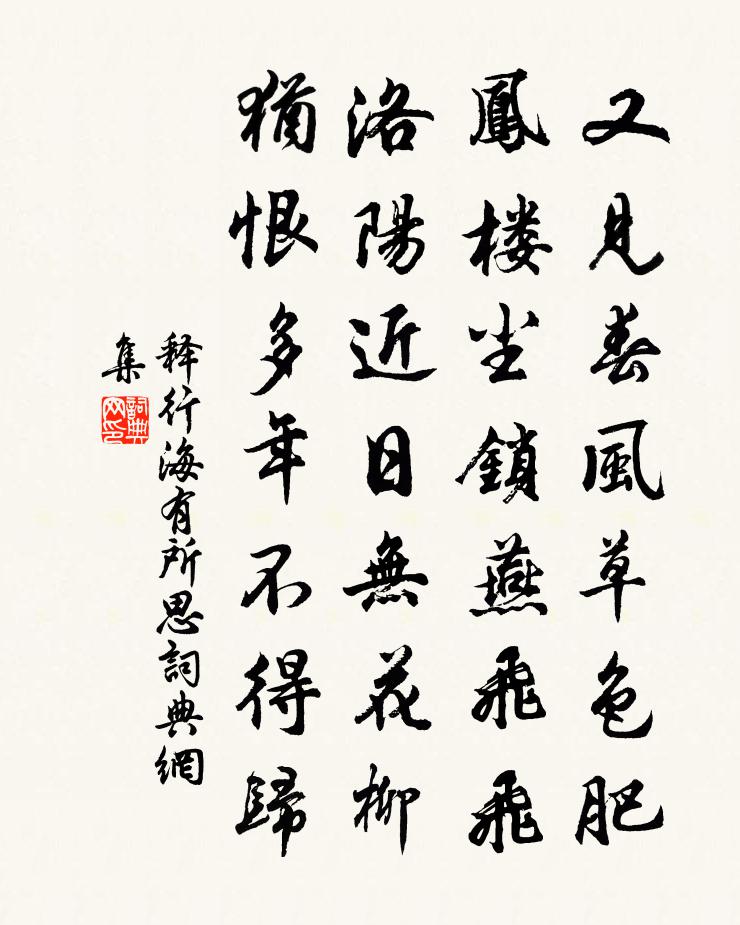 又見春風草色肥
鳳楼尘鎖燕飛飛
洛陽近日無花柳
猶恨多年不得歸
释行海有所思詞典網
集
詞典
网印